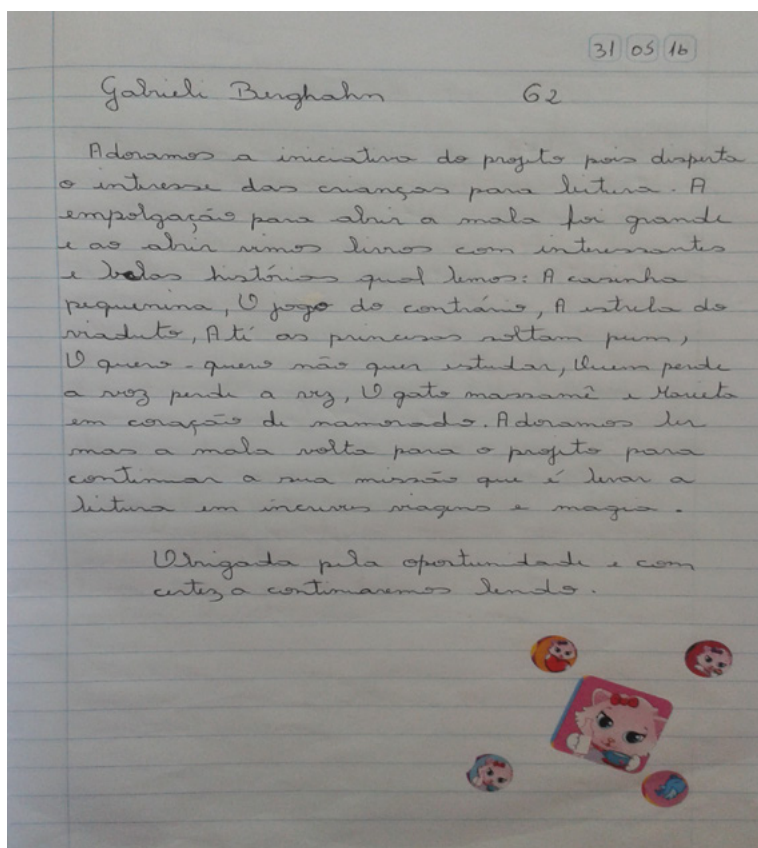 31 05 16
Gabrieli Berghahn G2
Adoramos a iniciativa do projeto pois disperta
o interesse das crianças para leitura. A
empolgação para abrir a mala foi grande
e ao abrir vimos livros com interessantes
e belas histórias qual lemos: A casinha
pequenina, O jogo do contrário, A estrela do
viaduto, Até as princesas soltam pum,
O quero-quero não quer estudar, Quem perde
a voz perde a vez, O gato massamê e Marieta
em coração de namorado. Adoramos ler
mas a mala volta para o projeto para
continuar a sua missão que é levar a
leitura em incriveis viagens e magia.
Obrigada pela oportunidade e com
certeza continuaremos lendo.